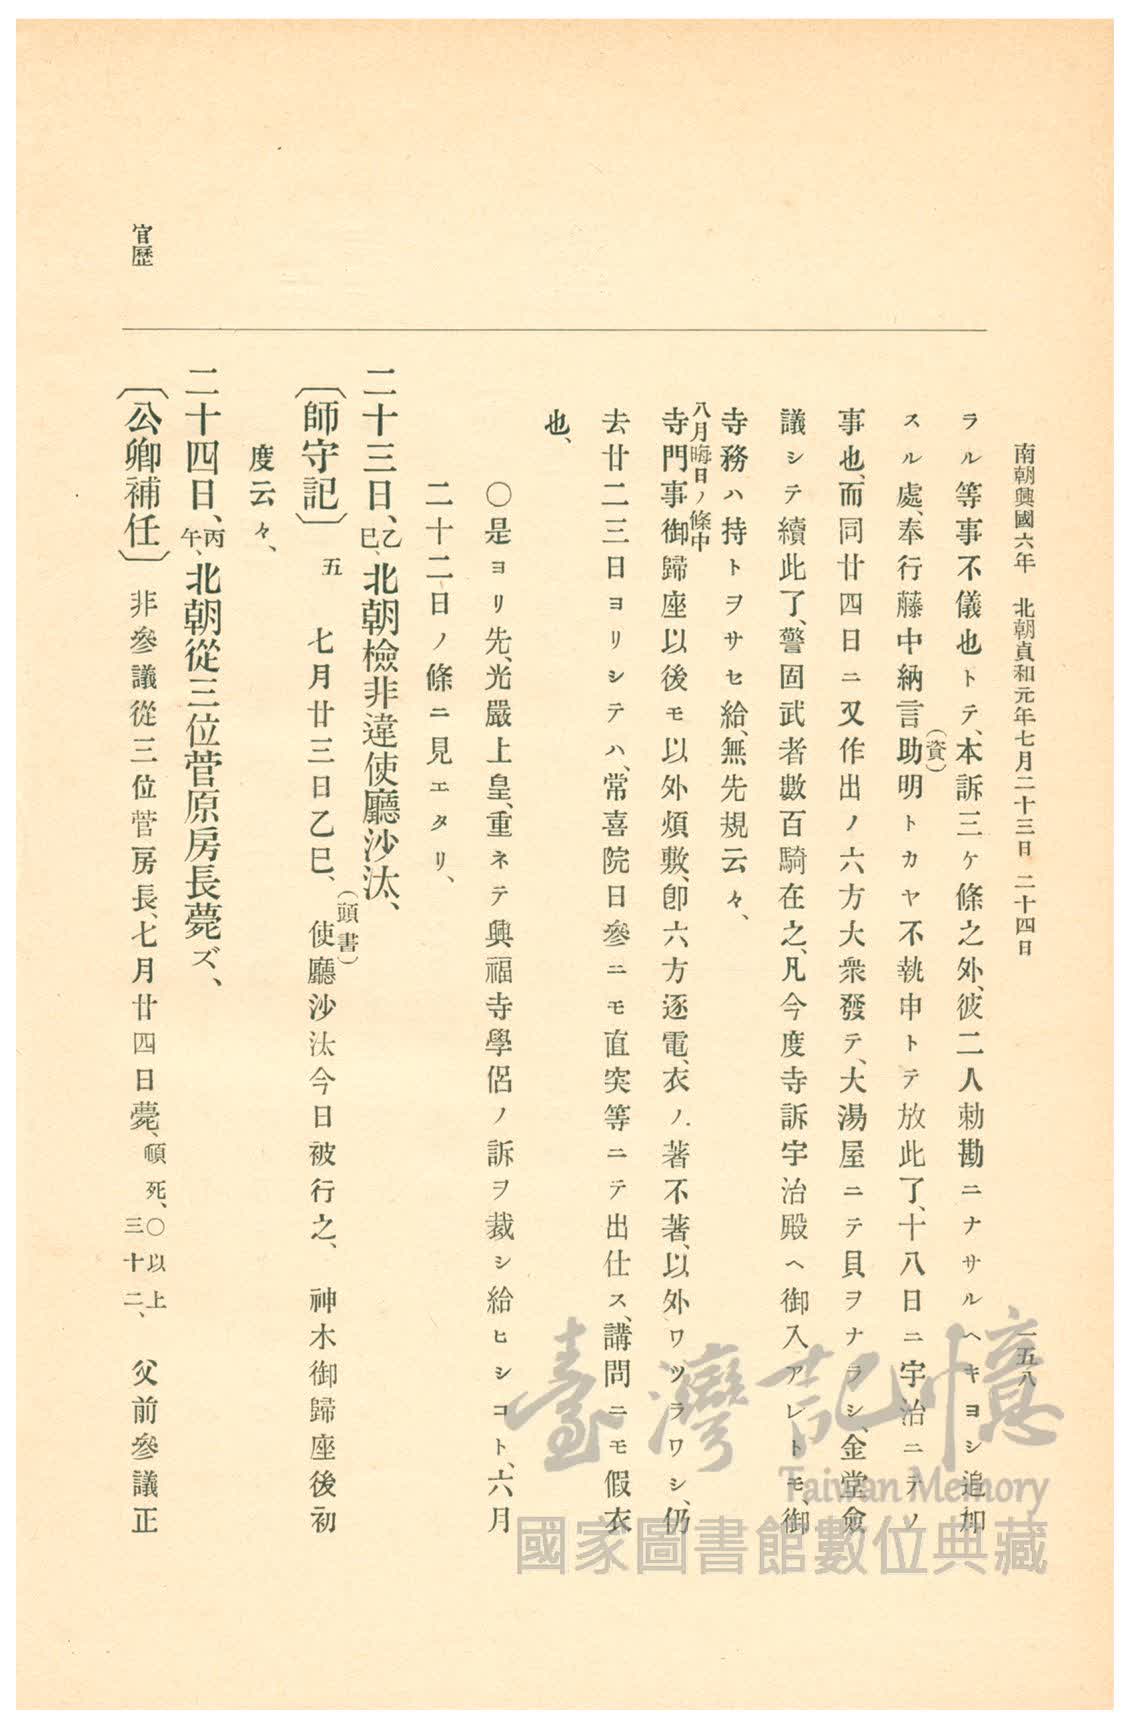 南朝興國六年 北朝貞和元年七月二十三日 二十四日
一五八
ラル等事不儀也トテ、本訴三ケ條之外、彼二人勅勘ニナサルヘキヨシ追加
スル處、奉行藤中納言助(資)明トカヤ不執申トテ放此了、十八日ニ宇治ニテノ
事也、而同廿四日ニ又作出ノ六方大衆發テ、大湯屋ニテ貝ヲナラシ、金堂愈
議シテ續此了、警固武者數百騎在之、凡今度寺訴宇治殿ヘ御入アレトモ、御
寺務ハ持トヲサセ給、無先規云々、
八月晦日ノ條中
寺門事御歸座以後モ以外煩敷、卽六方逐電、衣ノ著不著、以外ワツラワシ、仍
去廿二三日ヨリシテハ、常喜院日參ニモ直突等ニテ出仕ス、講問ニモ假衣
也、
〇是ヨリ先、光嚴上皇、重ネテ興福寺學侶ノ訴ヲ裁シ給ヒシコト、六月
二十二日ノ條ニ見エタリ、
二十三日、乙巳、北朝檢非違使廳沙汰、
〔師守記〕 五 七月廿三日乙巳、(頭書)使廳沙汰今日被行之、 神木御歸座後初
度云々、
二十四日、丙午、北朝從三位菅原房長薨ズ、
官歷
〔公卿補任〕 非參議從三位菅房長、七月廿四日薨、頓死、〇以上三十二、 父前參議正
臺灣記憶
Taiwan Memory
國家圖書館數位典藏